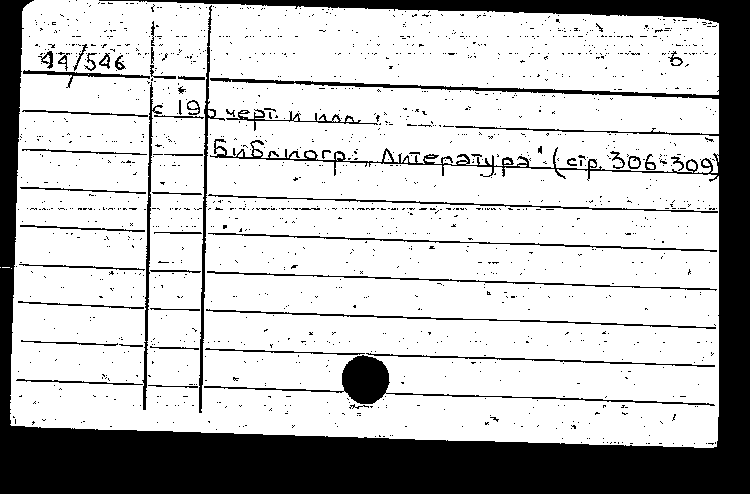 44/546 б.
с 196 черт. и илл.
Библиогр.: „Литература" (стр. 306-309)